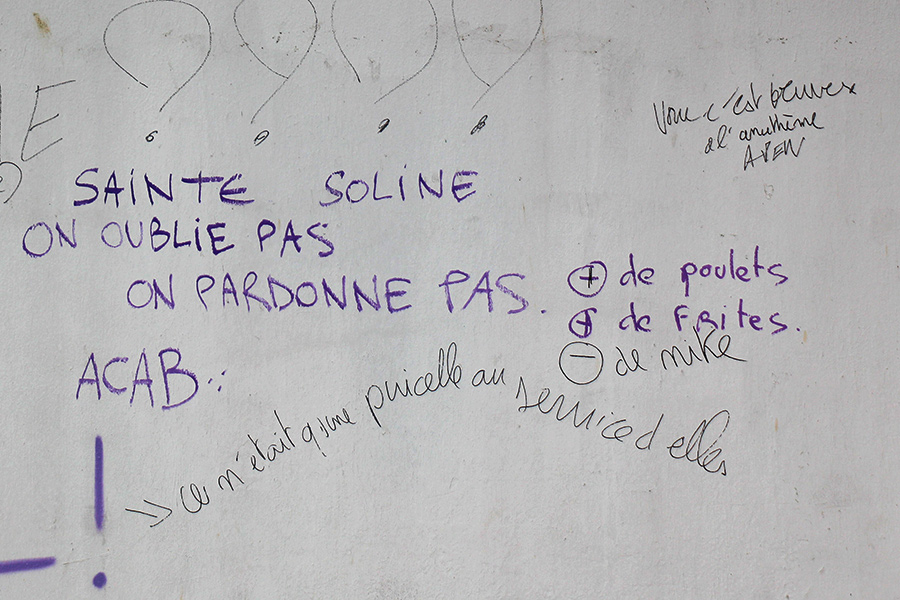 ? ? ? ?
E
Vous c'est
à l'
SAINTE SOLINE
ON OUBLIE PAS
ON PARDONNE PAS.
+ de poulets
+ de FRITES.
- de nike
ACAB
ce n'était qune pucelle au service d elles
!